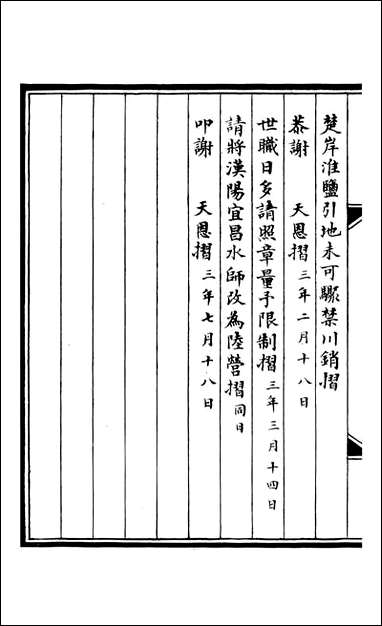 楚岸淮鹽引地未可驟禁川銷摺
恭謝　天恩摺三年二月十八日
世職日多請照章量予限制摺三年三月十四日
請將漢陽宜昌水師改為陸營摺同日
叩謝　天恩摺三年七月十八日